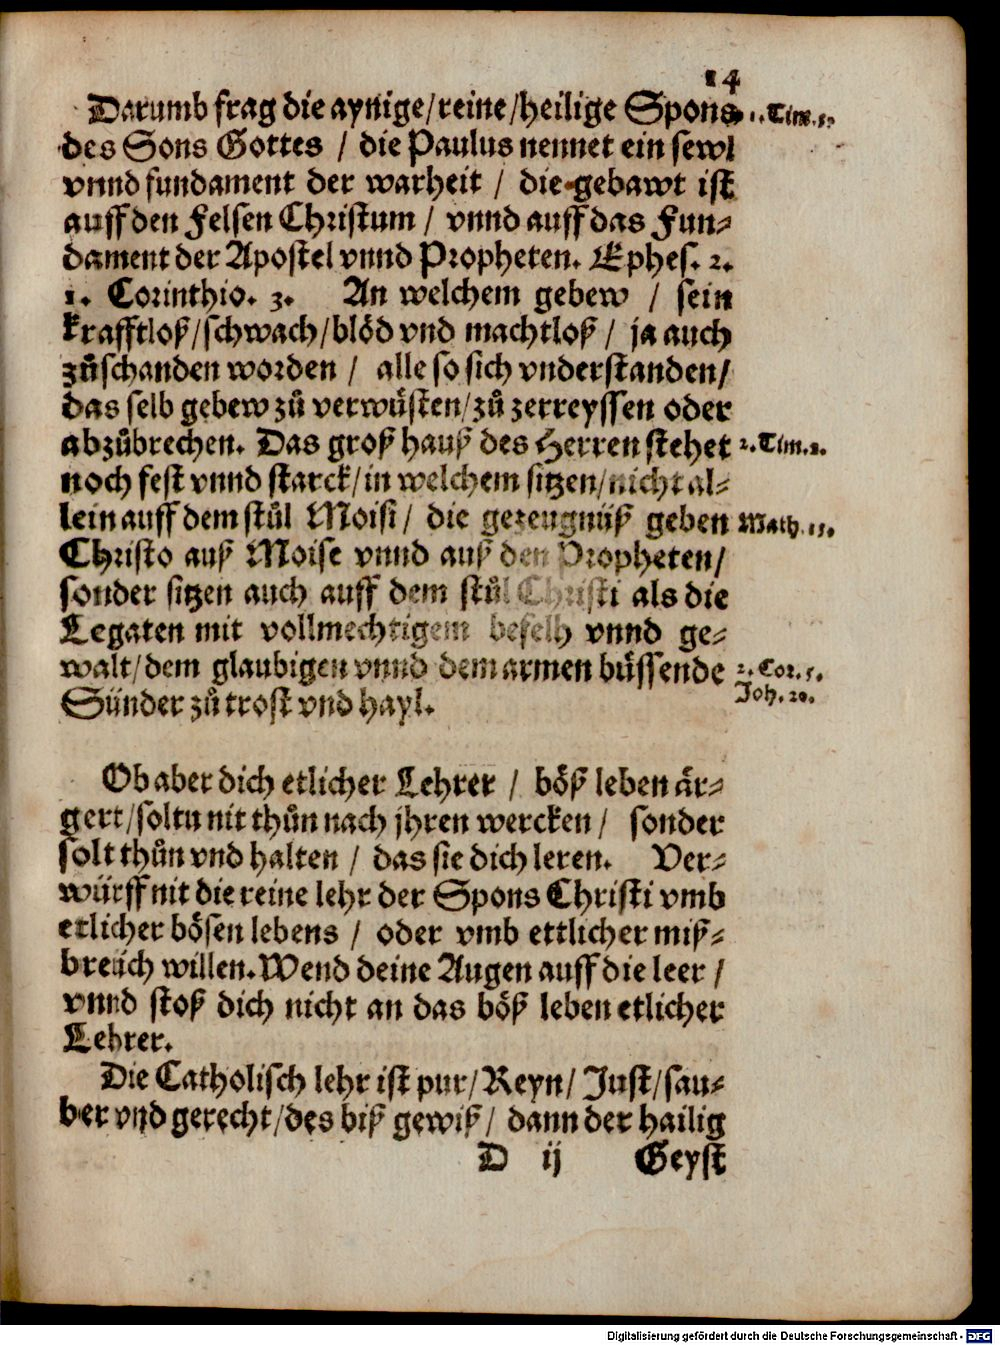 14
Darumb frag die aynige/reine/heilige Spons 1. Tim. 3.
des Sons Gottes / die Paulus nennet ein sewl
vnnd fundament der warheit / die gebawt ist
auff den Felsen Christum / vnnd auff das Fun-
dament der Apostel vnnd Propheten. Ephes. 2.
1. Corinthio. 3. An welchem gebew / sein
krafftloß/schwach/blöd vnd machtloß / ja auch
zůschanden worden / alle so sich vnderstanden/
das selb gebew zů verwůsten/zů zerreyssen oder
abzůbrechen. Das groß hauß des Herren stehet 2. Tim. 2.
noch fest vnnd starck/in welchem sitzen/nicht al-
lein auff dem stůl Moisi/ die gezeugnüß geben Math.
Christo auß Moise vnnd auß den Propheten/
sonder sitzen auch auff dem stůl Christi als die
Legaten mit vollmechtigem befelh vnnd ge-
walt/dem glaubigen vnnd dem armen bůssende 2. Cor. 5.
Sünder zů trost vnd hayl. Joh. 20.
Ob aber dich etlicher Lehrer / böß leben år-
gert/soltu nit thůn nach jhren wercken / sonder
solt thůn vnd halten / das sie dich leren. Ver-
würff nit die reine lehr der Spons Christi vmb
etlicher bösen lebens / oder vmb ettlicher miß-
breüch willen. Wend deine Augen auff die leer /
vnnd stoß dich nicht an das böß leben etlicher
Lehrer.
Die Catholisch lehr ist pur/Reyn/Just/sau-
ber vnd gerecht/des biß gewiß/ dann der hailig
D ij Geyst
Digitalisierung gefördert durch die Deutsche Forschungsgemeinschaft - DFG